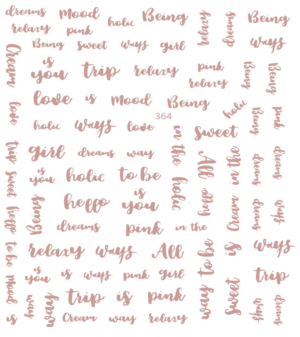 dreams mood holic Being relaxy dreams Being
relaxy pink ways
Being sweet ways girl
Cream is you trip relaxy pink Being Being
relaxy
love love is mood Being holic Being pink
364
holic ways love in the sweet
trip girl dreams way holic All in the dreams dreams
sweet is you holic to be
heppo Being heppo is you heppo Cream dreams ways
dreams pink in the
to be relaxy ways All to be is ways
mood is you is ways pink girl way sweet trip
is ways way trip is pink ways dreams
Cream way relaxy